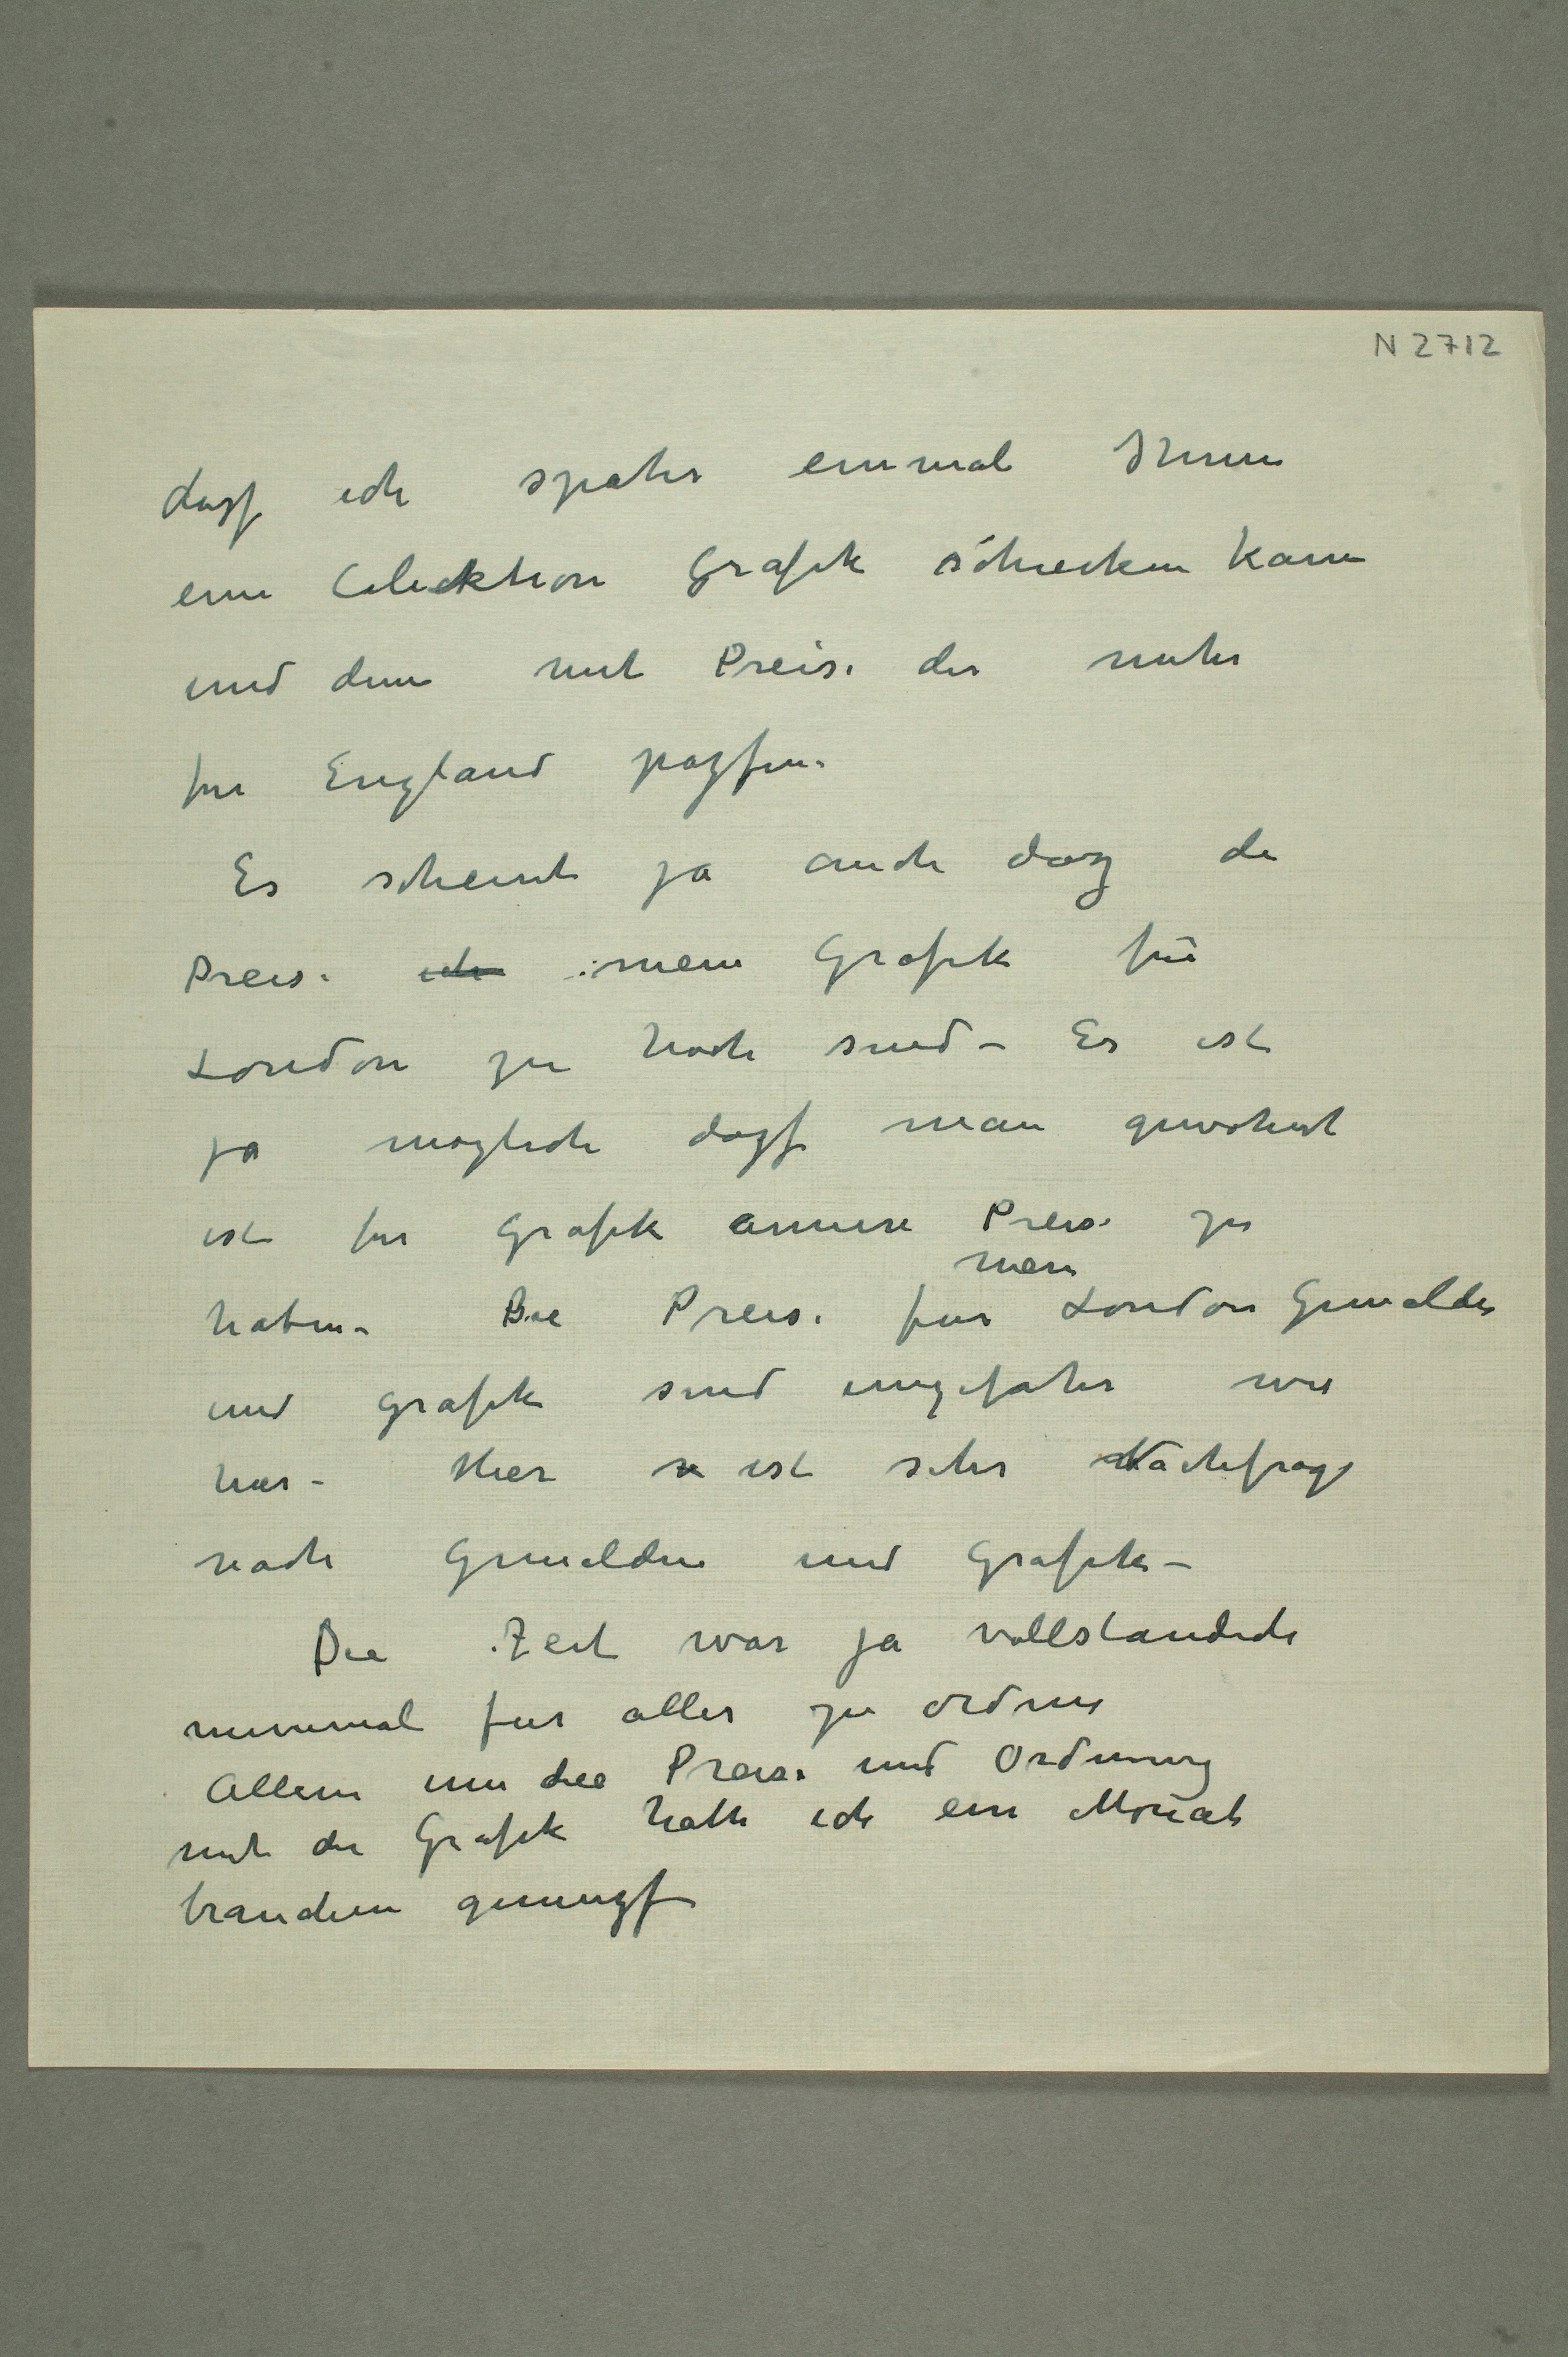 N 2712
dasz ich später einmal Ihnen
eine Colecktion Grafik schicken kann
und dann mit Preise der
für England paszen.
Es scheint ja auch dasz die
Preise ich meine Grafik für
London zu hoch sind – Es ist
ja möglich dasz man gewohnt
ist für Grafik Preise zu
haben – Die Preise für meine London Gemälde
und Grafik sind ungefähr wie
hier – Hier ist sehr Nachfrage
nach Gemälden und Grafik –
Die Zeit war ja vollständich
minimal für alles zu ordnen
Allein um die Preise und Ordnung
mit der Grafik hätte ich ein Monat
brauchen